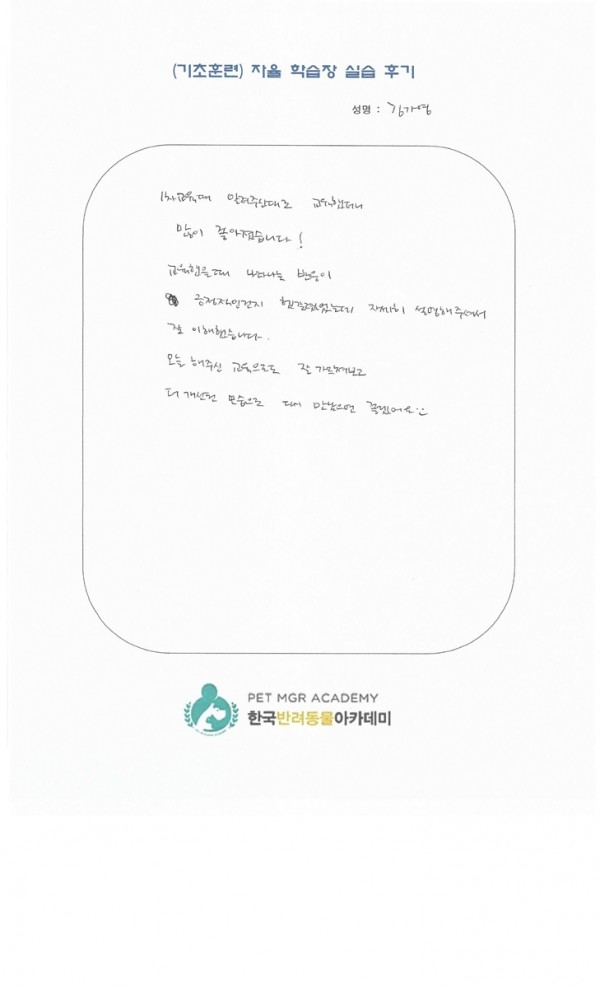 (기초훈련) 자율 학습장 실습 후기
성명 : 김가영
1차교육때 알려주신대로 교육했더니
많이 좋아졌습니다!
교육했을때 나타나는 반응이
긍정적인건지 헷갈렸었는데 자세히 설명해주셔서
잘 이해했습니다.
오늘 해주신 교육으로도 잘 가르쳐보고
더 개선된 모습으로 다시 만났으면 좋겠어요
PET MGR ACADEMY
한국반려동물아카데미